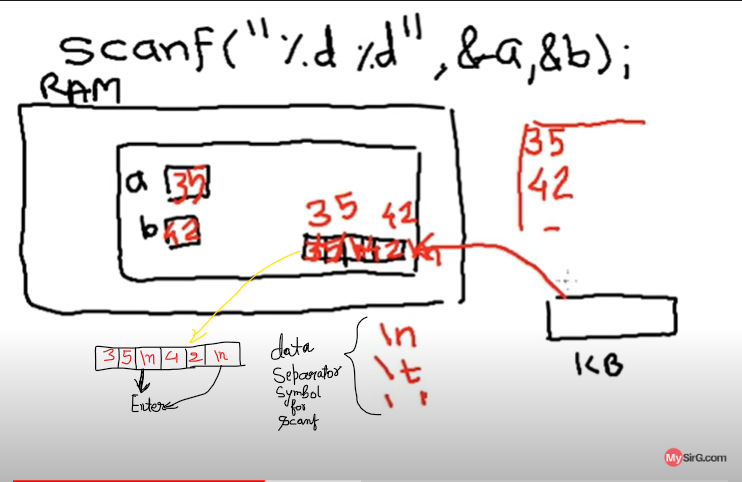 scanf("%d %d", &a,&b);
RAM
a 35
b 42
35 42
35\n42\n
35
42
-
KB
3 5 \n 4 2 \n
Enter
data
Separator
Symbol
for
scanf
\n
\t
' '
MySirG.com